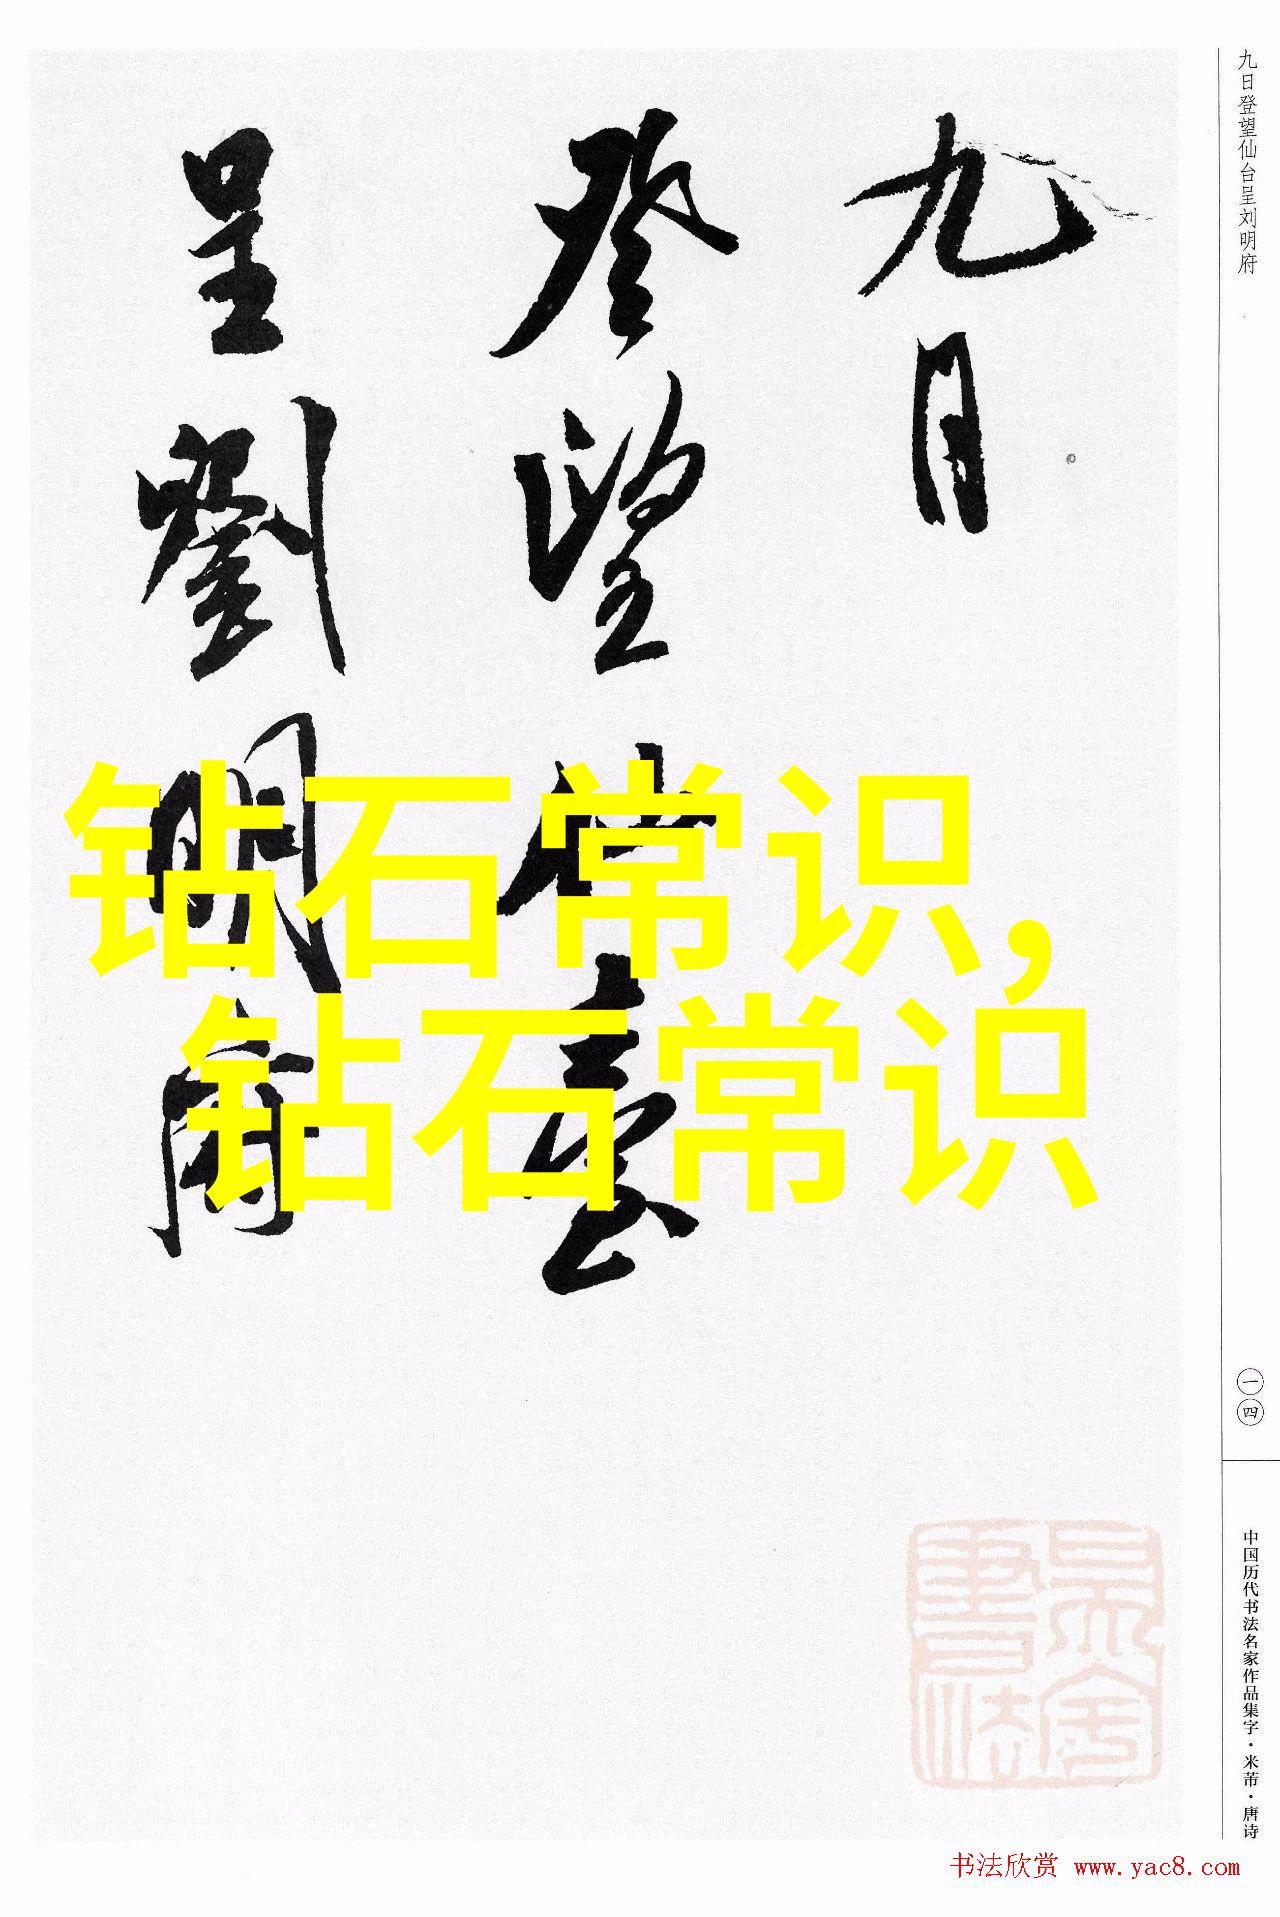 九日
登望仙臺
呈劉明府
钻石常识,
钻石常识
九日登望仙台呈刘明府
一四
中国历代书法名家作品集字·米芾·唐诗
书法欣赏 www.yac8.com